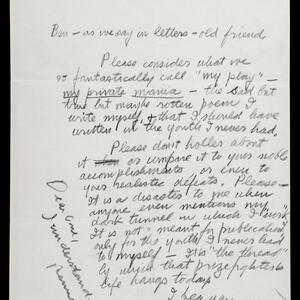 Ben - as we say in letters - old friend
Please consider what we
so fantastically call "my play" -
my private mania - the sad but
true but maybe rotten poem I
write myself, & that I should have
written in the youth I never had.
Please don't holler about
it or compare it to your noble
accomplishments or even to
your realistic defeats. Please -
It is a disaster to me when
anyone even mentions my
dark tunnel in which I "work"
It is not meant for publication,
only for the youth I never had
to myself - It is "the thread"
by which that prizefighter's
life hangs today.
I beg you
Dear one,
I understand